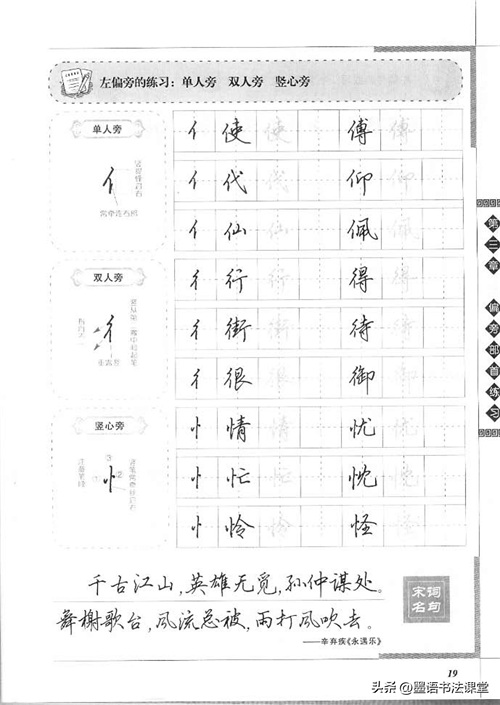 左偏旁的练习：单人旁 双人旁 竖心旁
单人旁
亻 使 使 傅 傅
亻 代 代 仰 仰
亻 仙 仙 佩 佩
双人旁
彳 行 行 得 得
彳 街 街 待 待
彳 很 很 御 御
竖心旁
忄 情 情 忧 忧
忄 忙 忙 忱 忱
忄 怜 怜 怪 怪
第三章 偏旁部首练习
千古江山，英雄无觅，孙仲谋处。
舞榭歌台，风流总被，雨打风吹去。
——辛弃疾《永遇乐》
宋词
名句
19
头条@墨语书法课堂